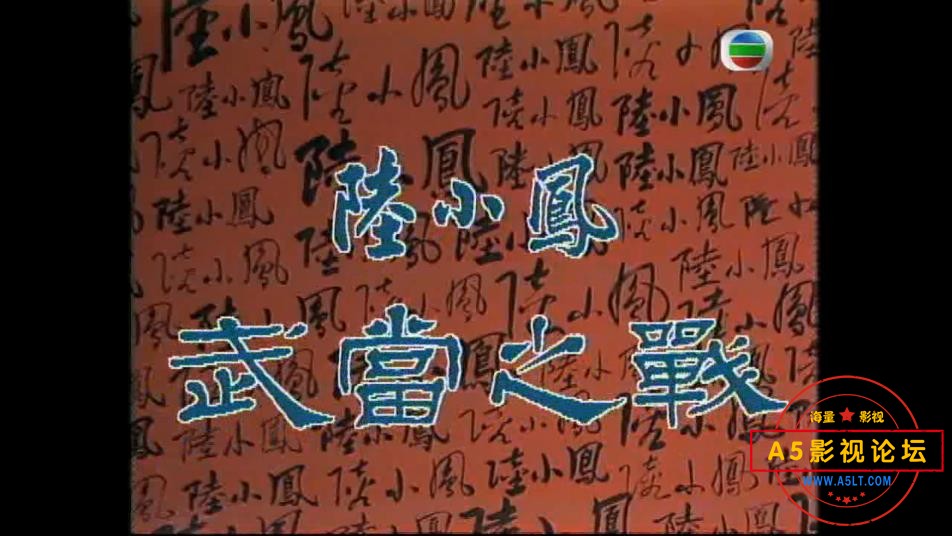 陸小鳳
武當之戰
海量★影视
A5影视论坛
WWW.A5LT.COM